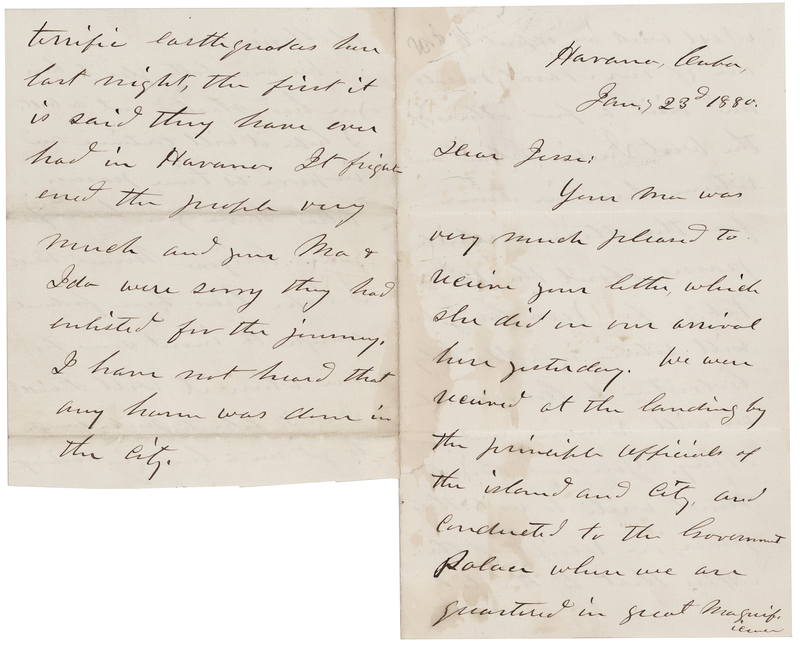 Havana, Cuba,
Jan.y 23d 1880.
Dear Jesse:
Your Ma was
very much pleased to
receive your letter, which
she did on our arrival
here yesterday. We were
received at the landing by
the principle officials of
the island and City, and
conducted to the Government
Palace where we are
quartered in great Magnif-
icence
terrific earthquakes here
last night, the first it
is said they have ever
had in Havana. It fright-
ened the people very
much and your Ma &
Ida were sorry they had
enlisted for the journey.
I have not heard that
any harm was done in
the city.